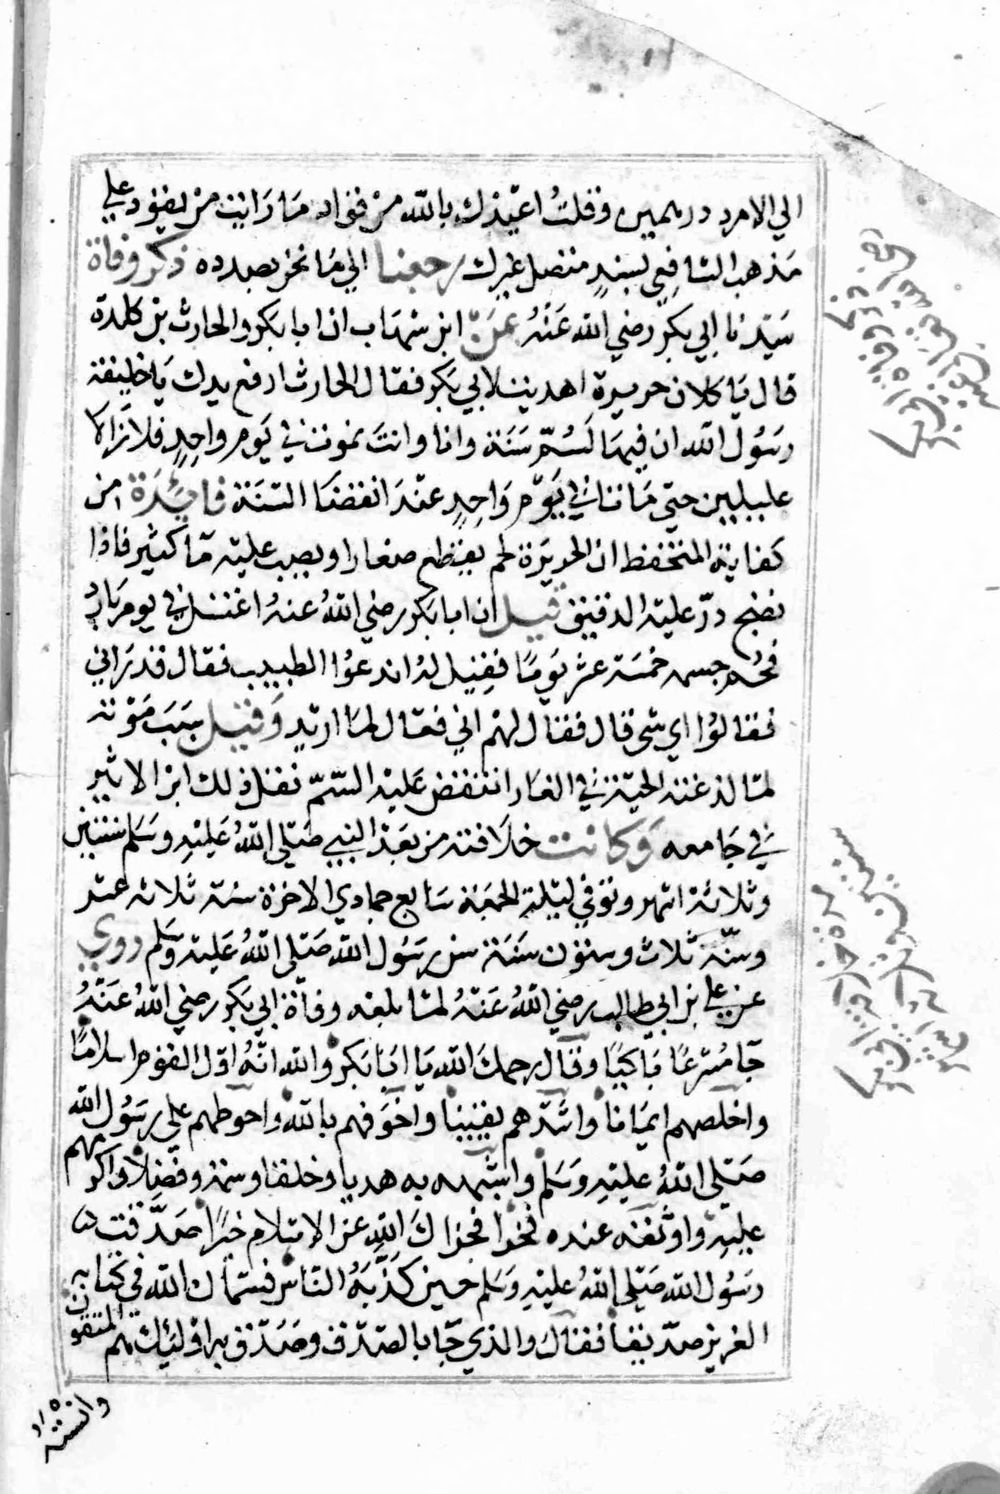 الي الامرد درهمين وقلتُ اعيذك بالله من فواد ما رايت من يفود علي
مذهب الشافعي بسندٍ متصل غيرك رجعنا الي ما نحن بصدده ذكر وفاة
سيّدنا ابي بكر رضي الله عَنْهُ عن ابن شهاب ان ابا بكر والحارث بن كلدة
قال يا كلان حريرة اهديت لابي بكر فقال الحارث ارفع يدك يا خليفة
رسُول الله ان فيها لسُمّ سَنَة وانا وانت نموت في يوم واحدٍ فلا زالا
عليلين حتي ماتا في يَوْم وَاحِدٍ عند انقضا السّنَة فايدَة من
كفاية المتحفظ ان الحريرة لحم يقطع صغارا ويصب عليه ما كثير فاذا
نضج درّ عليه الدقيق قيل ان ابا بكر رضي اللهُ عنهُ اغتسل في يوم بارد
فحُم جسمه خمسَة عشر يومًا فقيل لهُ اندعوُا الطبيب فقال قد يراني
فقالوُا اي شي قال فقال لهم اني فعال لما اريد وَقيل سبَبَ مَوْته
لما لدغته الحيّة في الغار انتقض عليه السّمّ نقل ذلك ابن الاثير
في جَامعه وَكانت خلافته من بَعْد النبي صَلّي اللهُ عَليْهِ وسَلم سنتين
وثلاثة اشهر وتوفي ليلة الجمعَة سَابع جمادي الاخرة سنة ثلاثه عشر
وسنّه ثلاث وستون سَنَة سن رسَول الله صَلّي اللهُ عَليْه وسَلم روي
عن علي بن ابي طالب رضي اللهُ عَنْهُ لما بلغه وفاة ابي بكر رضي اللهُ عَنْهُ
جَا مُسْرعًا بَاكيًا وقال رحمك الله يا ابا بكر والله انّهُ اوّل القوم اسلامًا
واخلصهم ايمَانا واشدّهم يقينا واخوفهم بالله واحوطهم علي رسُول الله
صَلّي اللهُ عليْهِ وسَلم واشبهه به هديا وخلقا وسمتا وفضلا واكرمهم
عليهِ واوثقه عنده فجزاك الله عن الاسلام خيرًا صَدّقت
رسُول الله صَلّي اللهُ عليْهِ وسَلم حين كذَّبَهُ النّاس فسمّاك الله في كتابه
العزيز صدّيقا فقال والذي جَا بالصّدق وصَدّق به اولئك هم المتقون